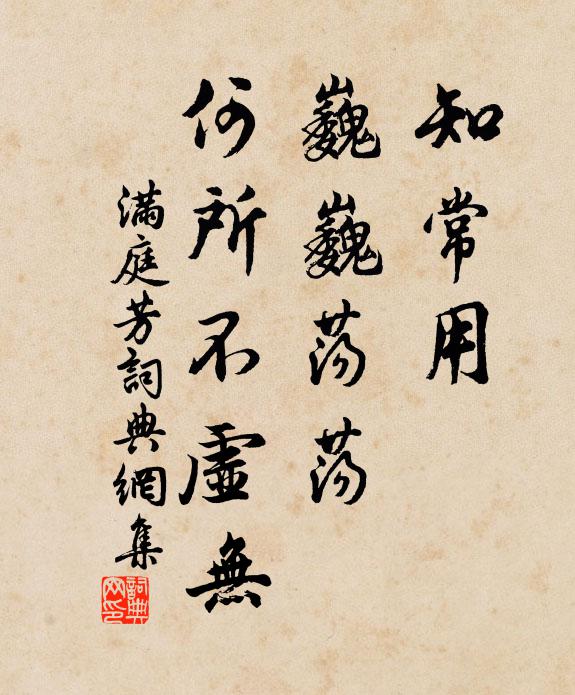 知常用
巍巍蕩蕩
何所不虛無
滿庭芳詞典網集
詞典網印